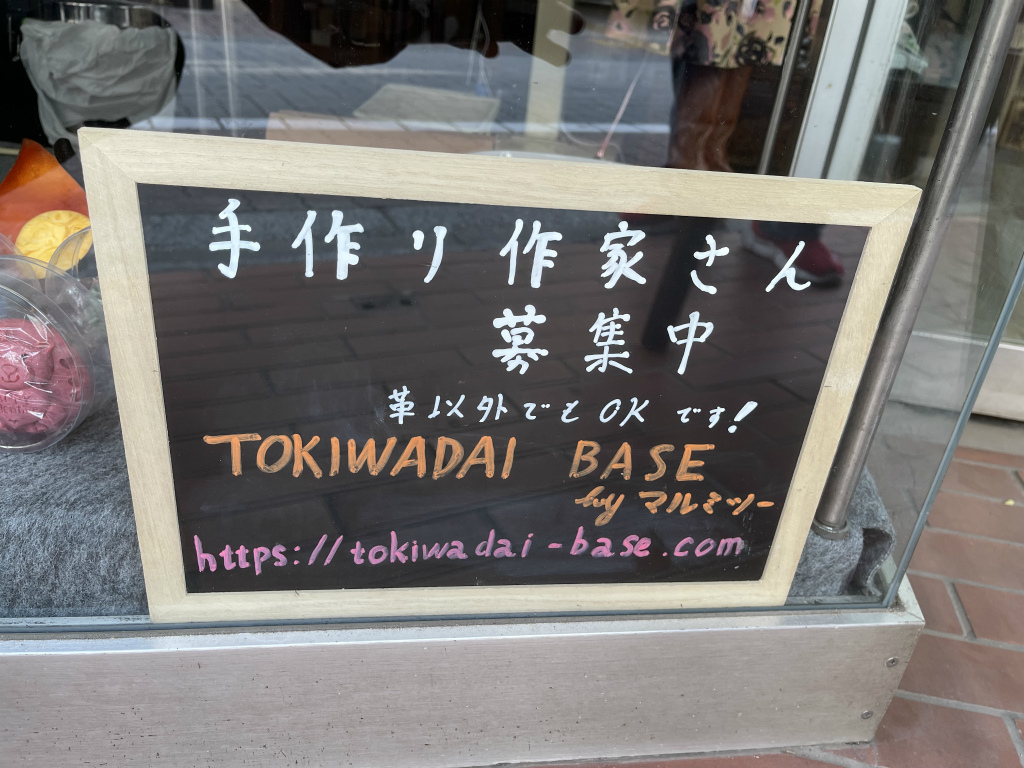 手作り作家さん
募集中
革以外でもOKです!
TOKIWADAI BASE
by マルミツー
https://tokiwadai-base.com